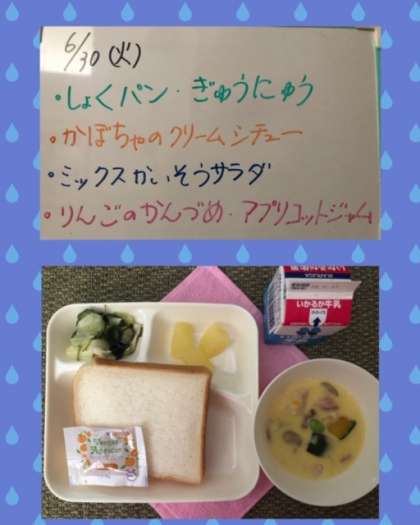 6/30 (火)
・しょくパン・ぎゅうにゅう
・かぼちゃのクリームシチュー
・ミックスかいそうサラダ
・りんごのかんづめ・アプリコットジャム
いかるが牛乳